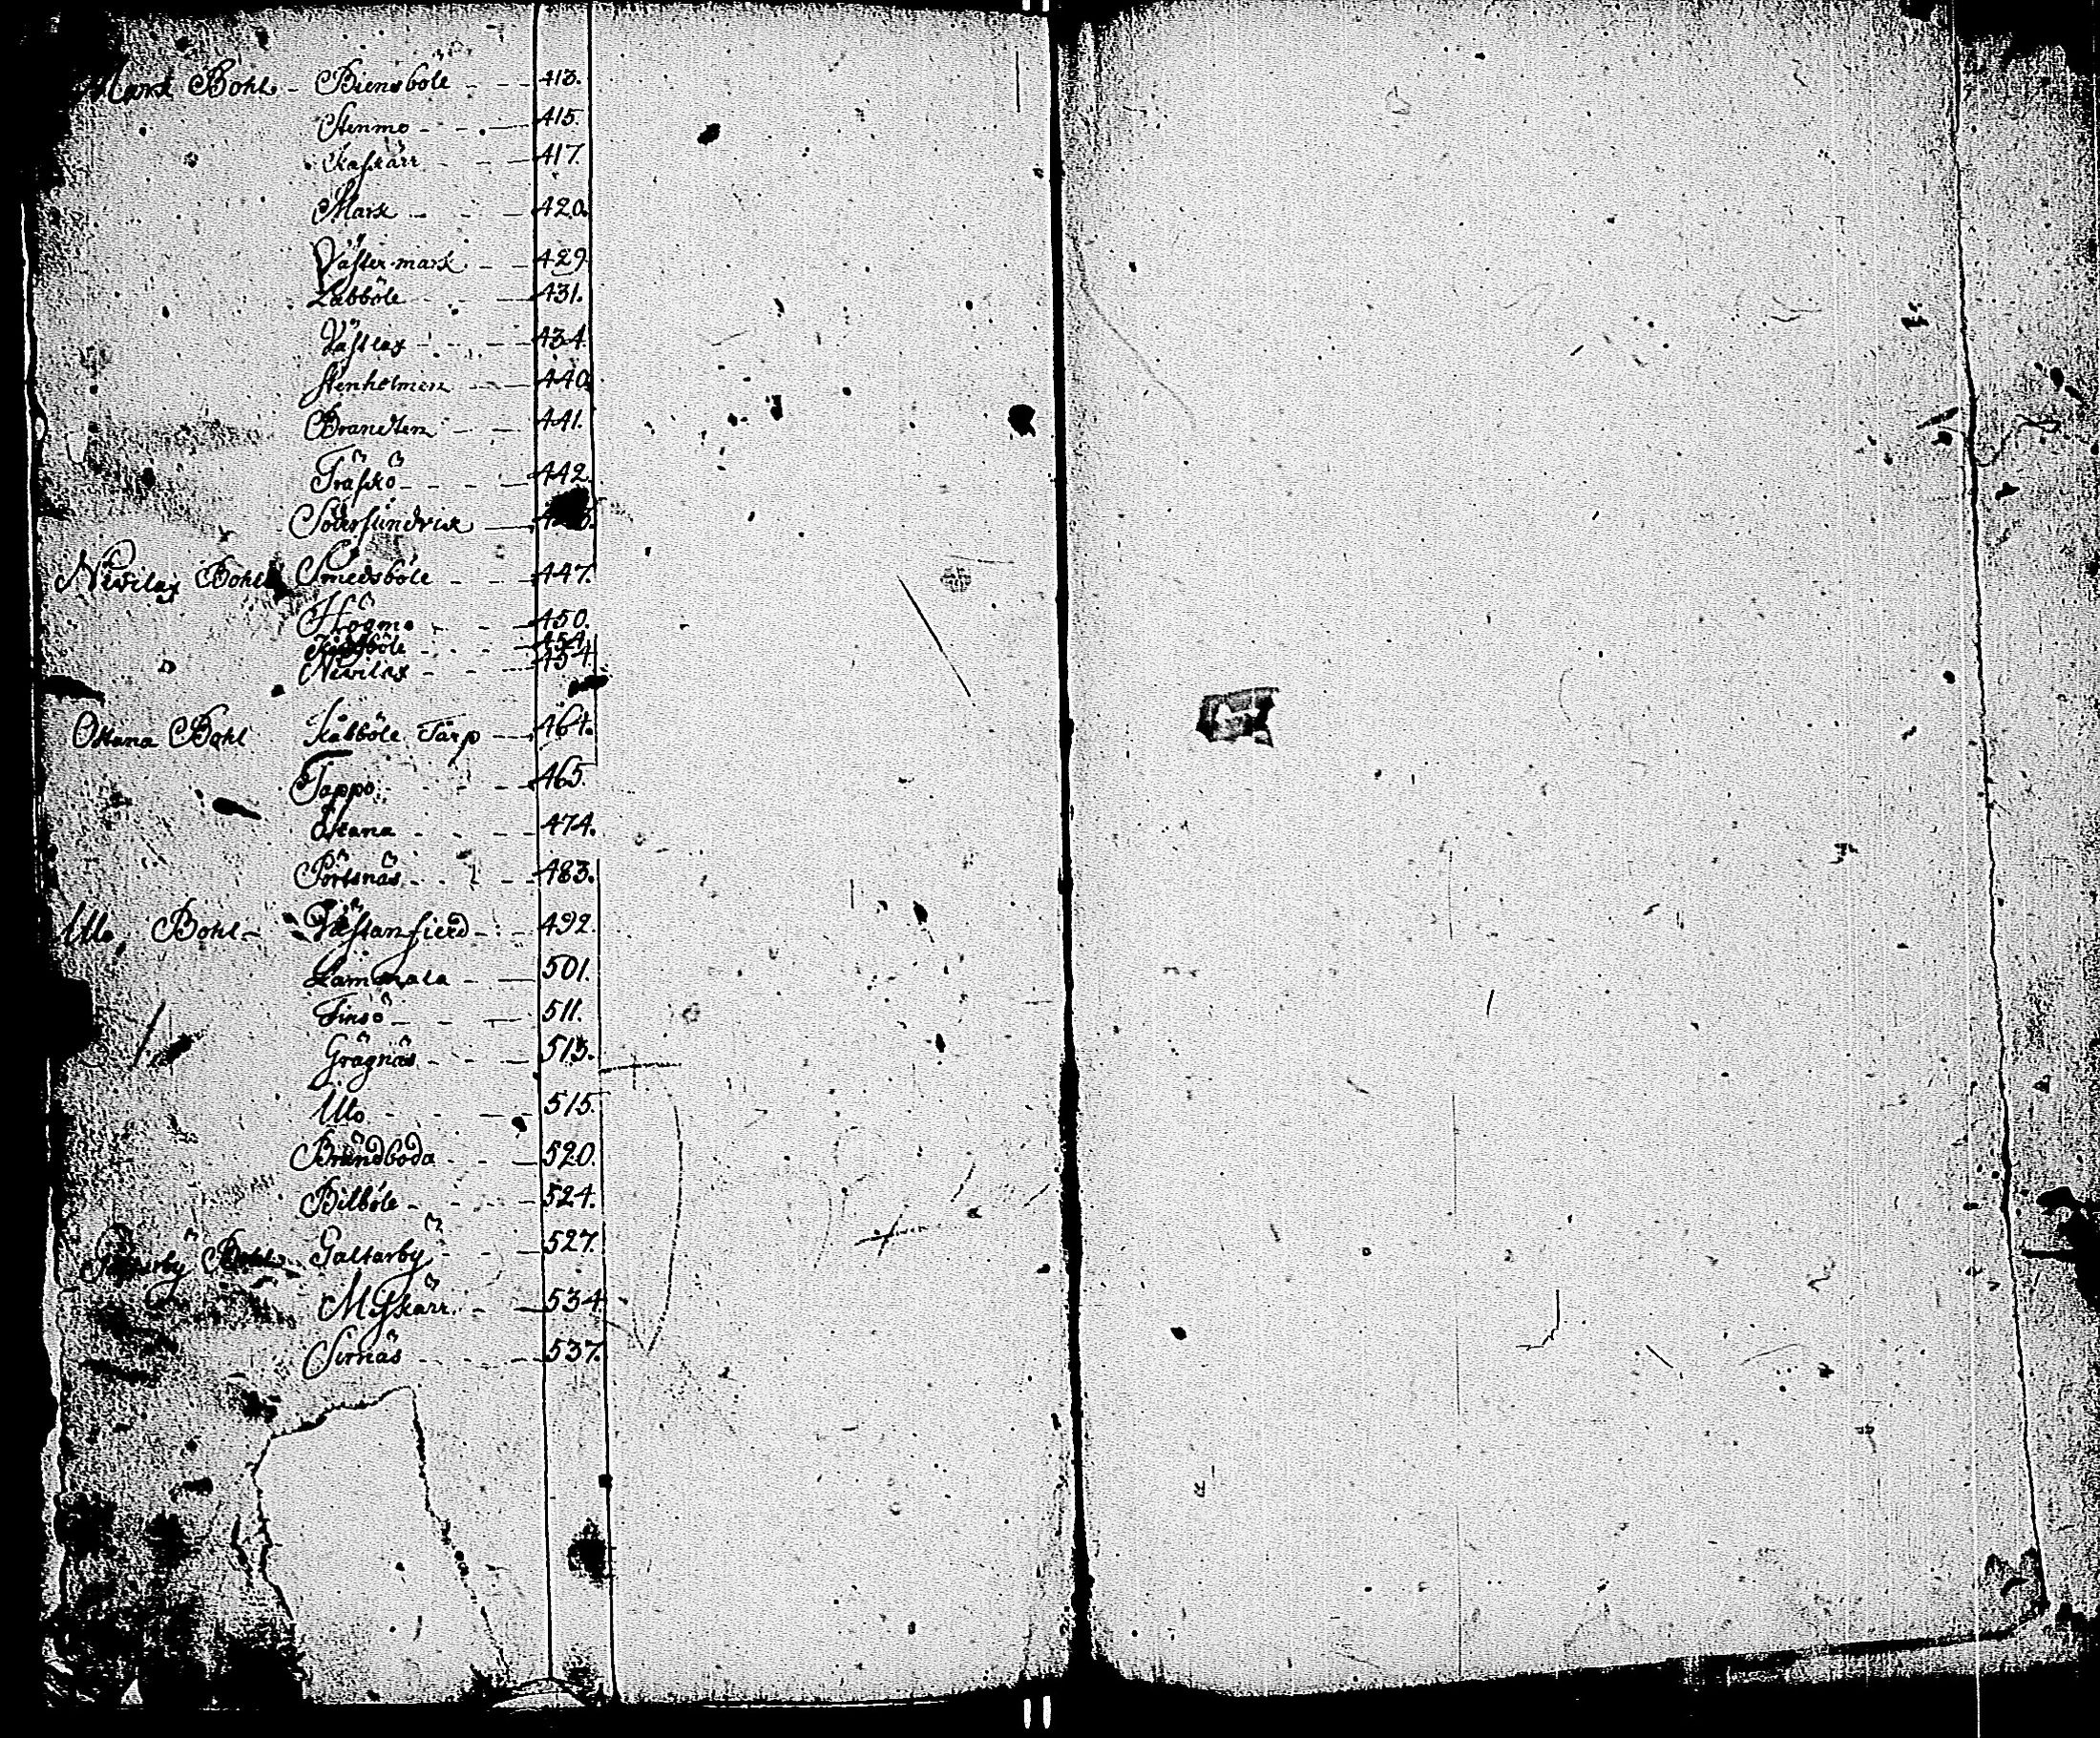 Mark Bohl - Biensböle - - - 413.
Stenmo - - - 415.
Kaskärr - - - 417.
Mark - - - 420.
Västermark - - 429
Labböle - - - 431.
Västlax - - - 434.
Stenholmen - - 440
Brandsten - - 441.
Träskö - - - 442
Södersundvik -
Nivilax Bohl Smedsböle - - - 447.
Högmo - - - 450.
böle - - - 454.
Nivilax - - - 454.
Östana Bohl Kåbböle Tårp - 461.
Tappo - - - 465.
Östana - - - 474.
Pörtsnäs - - - 483.
Ulo, Bohl - Västanfierd - - 492.
Lammala - - 501.
Finsö - - - 511.
Grågnäs - - - 513.
Ulo - - - 515.
Brändboda - - - 520.
Bilböle - - - 524.
Bohl Galtarby - - - 527.
Myskärr - - - 534
Sirnäs - - - 537.